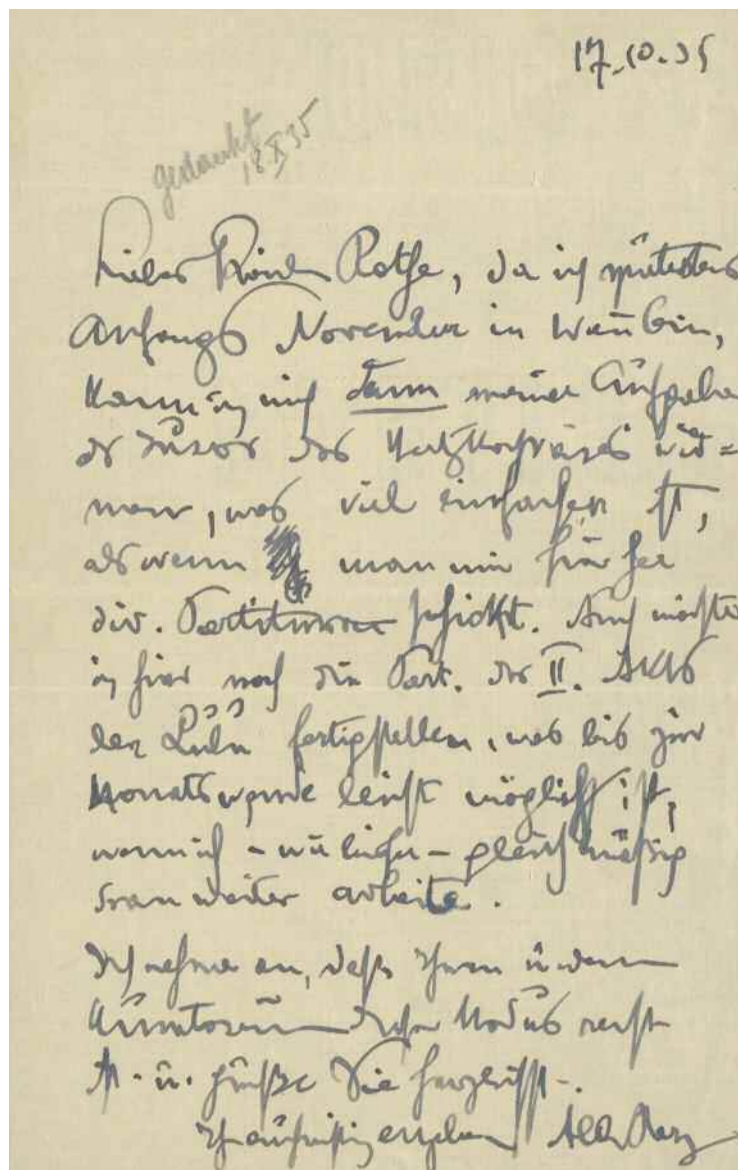 17.10.35
gedankt
18 X 35
Lieber Rothe, da ich spätestens
Anfangs November in Wien bin,
kann ich mich dann meiner Aufgabe
als Juror des wid-
men, was viel einfacher ist,
als wenn man mir hier her
div. Partituren schickt. Auch möchte
ich hier noch die Part. des II. Akts
der Lulu fertigstellen, was bis zur
Monatswende leicht möglich ist,
wenn ich - wie bisher - gleichmäßig
dran weiter arbeite.
Ich nehme an, dass Ihnen u. dem
Kuratorium dieser Modus recht
ist u. grüße Sie herzlichst.
Ihr aufrichtig ergebener Alban Berg